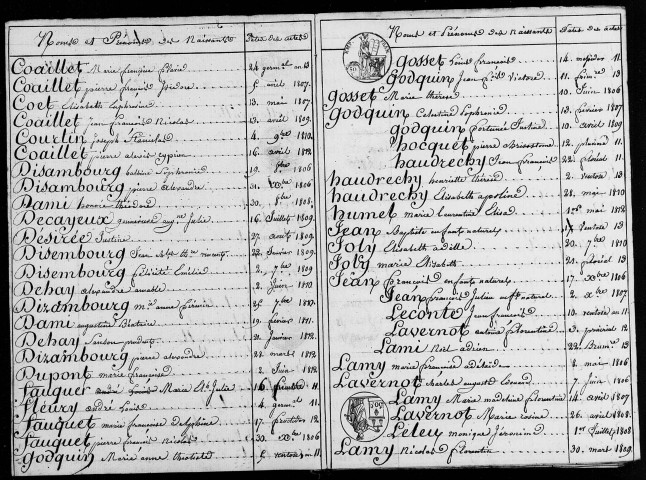 Noms et Prénoms des Naissants Dates des actes
Coaillet Marie françoise 24 germal an 13
Coaillet pierre françois Isidore 5 avril 1807.
Coet Elisabeth Euphrosine 13 mai 1807.
Coaillet jean françois Nicolas 13 avril 1809.
Courtin joseph Stanislas 4 9bre 1810.
Coaillet pierre alexis cyprien 16 avril 1812
Disambourg 19 1806
Disambourg pierre alexandre 31 Xbre 1806
Dami honoré théodore 30 8bre 1808.
Decayeux Julie 16 Juillet 1809.
Désirée Justine 27 aoust 1809.
Disembourg Jean Bte vincent 22 février 1809.
Disembourg félicité Emilie 2 7bre 1809
Dehay alexandre 2 Juin 1810
Dizambourg firmin 25 7bre
Dami augustine Beatrice 19 février 1811.
Dehay 21 Janvier 1812.
Dizambourg pierre alexandre 28 mars 1812.
Dupont marie françoise 2 Juin 1812.
Fauquer Louis Marie Julie 16 11
Fleury andré Louis 4 germal 11
Fauquet marie françoise Delphine 17 fructidor 12
Fauquet pierre francois Nicolas 30 Xbre 1806
Godquin Marie anne 5 ventose 11
Noms et Prénoms des Naissants Dates des actes
Gosset Louis François 14 messidor 11
Godquin Jean fçois Victoire 11 13
Gosset Marie thérèse 10 Juin 1806
Godquin Celestine Sophronie 13 février 1807
Godquin fortuné Justine 10 avril 1809
hocquet pierre 12 11
haudrechy Jean François 22 floréal 11
haudrechy henriette thérèse 2 ventose 13
haudrechy Elisabeth apoline 28 mai 1810
humel marie Laurentine Elisa 1er mai 1812
Jean Baptiste enfant naturel 17 Ventose 13
Joly Elisabeth adille 20 7bre 1810
Joly marie Elisabeth 21 floréal 13
Jean françois enfant naturel 17 Xbre 1806
Jean françois Julien enft naturel 2 Xbre 1807.
Leconte Jean françois 10 ventose an 11
Lavernot antoine florentin 3 prairial 12
Lami Noel adrien 22 Brumre 13
Lamy marie françoise adelaide 2 mai 1806
Lavernot charles auguste Edouard 7 Juin 1806
Lamy Marie madeleine florentine 14 avril 1807
Lavernot Marie rosine 26 avril 1808.
Leleu monique Jéromine 1er Juillet 1808
Lamy Nicolas florentin 30 mars 1809.